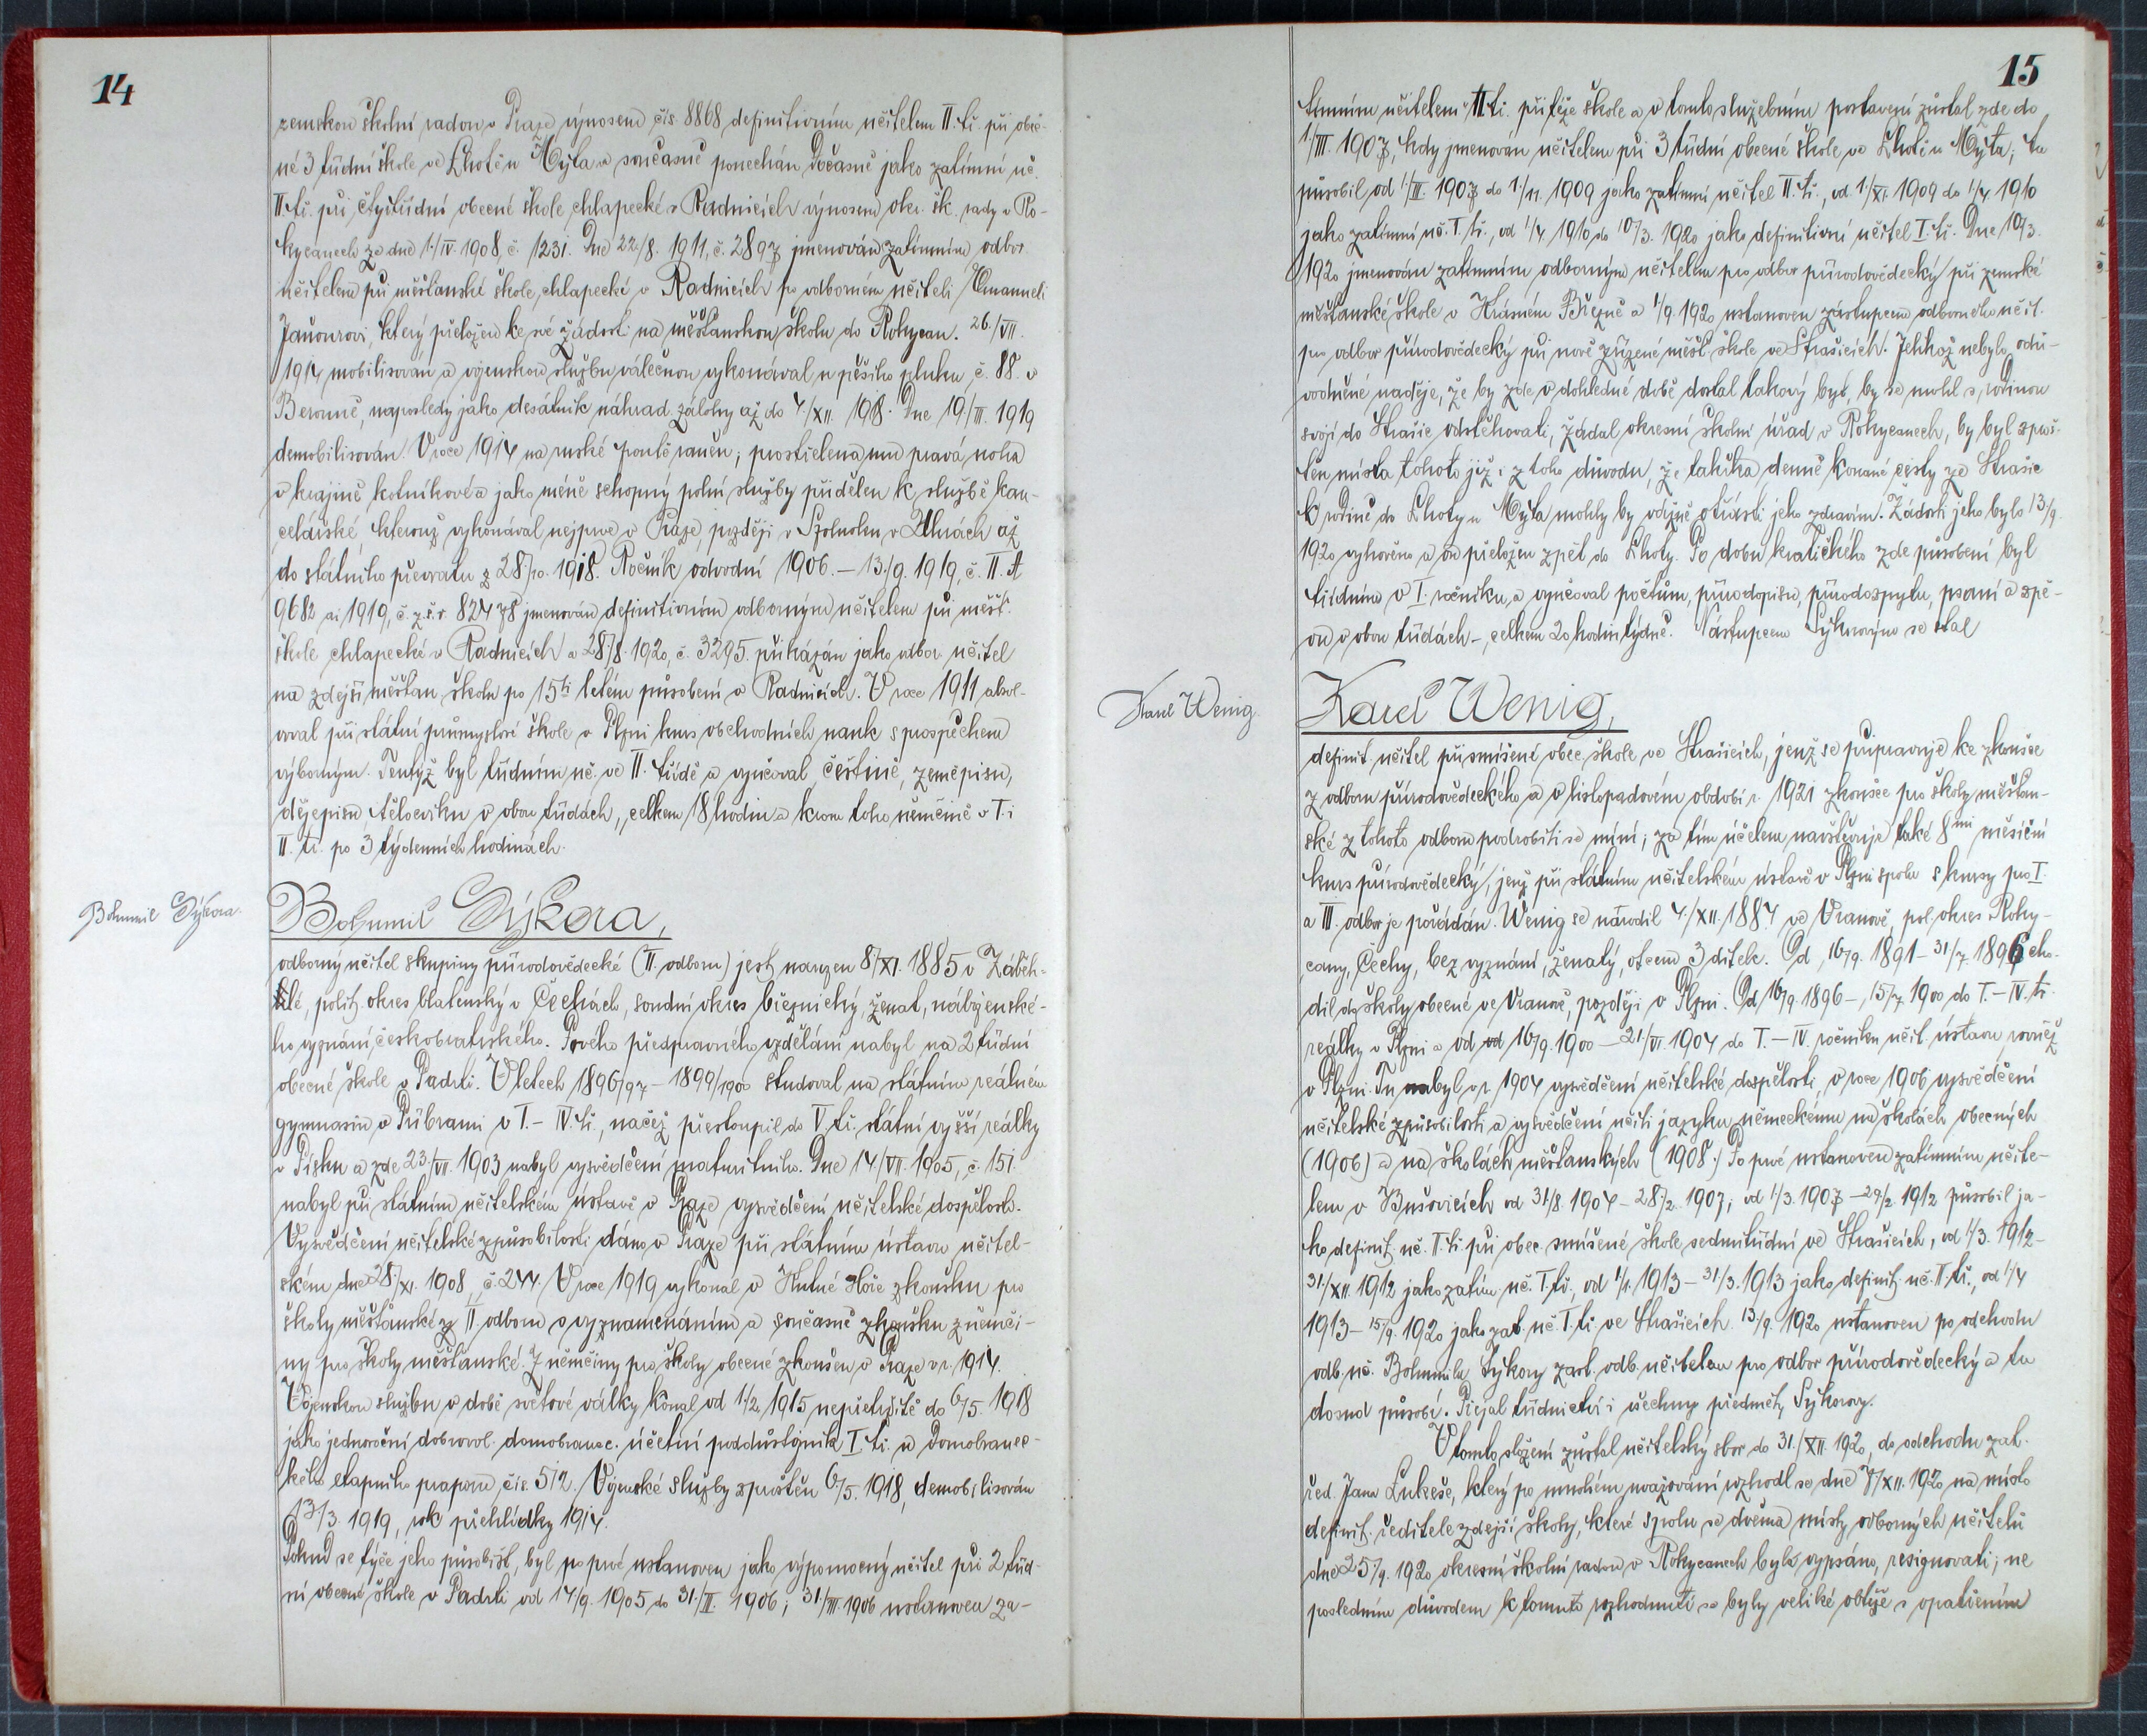 14
zemskou školní radou v Praze výnosem čís. 8868 definitivním učitelem II. tř. při obec-
né 3 třídní škole ve Lhotě u Mýta a současně ponechán dočasně jako zatímní uč.
II. tř. při čtyřtřídní obecné škole chlapecké v Radnicích výnosem okr. šk. rady v Ro-
kycanech ze dne 1./IV. 1908, č. 1231. Dne 22./8. 1911, č. 2897 jmenován zatímním odbor.
učitelem při měšťanské škole chlapecké v Radnicích po odborném učiteli Emanueli
Janourovi, který přeložen ke své žádosti na měšťanskou školu do Rokycan. 26./VII.
1914 mobilisován a vojenskou službu válečnou vykonával u pěšího pluku č. 88. v
Berouně, naposledy jako desátník náhrad. zálohy až do 4./XII. 1918. Dne 19./III. 1919
demobilisován. V roce 1914 na ruské frontě raněn; prostřelena mu pravá noha
v krajině kotníkové a jako méně schopný polní služby přidělen k službě kan-
celářské, kterouž vykonával nejprve v Praze, později v Szolnoku v Uhrách až
do státního převratu z 28./10. 1918. Ročník odvodní 1906. – 13./9. 1919, č. II. A
9682 ai 1919, č. z. š. r. 82478 jmenován definitivním odborným učitelem při měšť.
škole chlapecké v Radnicích a 28./8. 1920, č. 3295. přikázán jako odbor. učitel
na zdejší měšťan. školu po 15ti letém působení v Radnicích. V roce 1911 absol-
voval při státní průmyslové škole v Plzni kurs obchodních nauk s prospěchem
výborným. Tentýž byl třídním uč. ve II. třídě a vyučoval češtině, zeměpisu,
dějepisu, tělocviku v obou třídách, celkem 18 hodin a krom toho němčině v I. i
II. tř. po 3 týdenních hodinách.
Bohumil Sýkora.
Bohumil Sýkora,
odborný učitel skupiny přírodovědecké (II. odboru) jest narozen 8./XI. 1885 v Záběh-
lé, polit. okres blatenský v Čechách, soudní okres březnický, ženat, náboženské-
ho vyznání českobratrského. Prvého předpravného vzdělání nabyl na 2 třídní
obecné škole v Padrti. V letech 1896/97 – 1899/1900 studoval na státním reálném
gymnasiu v Příbrami v I. – IV. tř., načež přestoupil do V. tř. státní vyšší reálky
v Písku a zde 23./VII. 1903 nabyl vysvědčení maturitního. Dne 14./VII. 1905, č. 151
nabyl při státním učitelském ústavě v Praze vysvědčení učitelské dospělosti.
Vysvědčení učitelské způsobilosti dáno v Praze při státním ústavu učitel-
ském dne 28./XI. 1908, č. 244. V roce 1919 vykonal v Hutné Hoře zkoušku pro
školy měšťanské z II. odboru s vyznamenáním a současně zkoušku z němči-
ny pro školy měšťanské. Z němčiny pro školy obecné zkoušen v Praze v r. 1914.
Vojenskou službu v době světové války konal od 1./2. 1915 nepřetržitě do 6./5. 1918
jako jednoroční dobrovol. domobranec. účetní poddůstojník I. tř. u domobranec-
kého etapního praporu čís. 512. Vojenské služby sproštěn 6./5. 1918, demobilisován
13./3. 1919, rok přehlídky 1914.
Pokud se týče jeho působišť, byl po prvé ustanoven jako výpomocný učitel při 2 tříd-
ní obecné škole v Padrti od 14./9. 1905 do 31./II. 1906; 31./III. 1906 ustanoven za-
15
tímním učitelem II. tř. při téže škole a v tomto služebním postavení zůstal zde do
1./III. 1907, kdy jmenován učitelem při 3 třídní obecné škole ve Lhotě u Mýta; tu
působil od 1./III. 1907 do 1./11. 1909 jako zatímní učitel II. tř., od 1./XI. 1909 do 1./4. 1910
jako zatímní uč. I. tř., od 1./4. 1910 do 10./3. 1920 jako definitivní učitel I. tř. Dne 19/3.
1920 jmenován zatímním odborným učitelem pro odbor přírodovědecký při zemské
měšťanské škole v Krásném Březně a 1./9. 1920 ustanoven zástupcem odborného učit.
pro odbor přírodovědecký při nově zřízené měšť. škole ve Strašicích. Jelikož nebylo odů-
vodněné naděje, že by zde v dohledné době dostal takový byt, by se mohl s rodinou
svojí do Strašic odstěhovati, žádal okresní školní úřad v Rokycanech, by byl sproš-
těn místa tohoto již i z toho důvodu, že takřka denně konané cesty ze Strašic
k rodině do Lhoty u Mýta mohly by vážně otřásti jeho zdravím. Žádosti jeho bylo 13/9.
1920 vyhověno a on přeložen zpět do Lhoty. Po dobu kratičkého zde působení byl
třídním v I. ročníku a vyučoval počtům, přírodopisu, přírodozpytu, psaní a zpě-
vu v obou třídách – celkem 20 hodin týdně. Nástupcem Sýkorovým se stal
Karel Wenig.
Karel Wenig,
definit. učitel při smíšené obec. škole ve Strašicích, jenž se připravuje ke zkoušce
z odboru přírodovědeckého a v listopadovém období r. 1921 zkoušce pro školy měšťan-
ské z tohoto odboru podrobiti se míní; za tím účelem navštěvuje také 8mi měsíční
kurs přírodovědecký, jenž při státním učitelském ústavě v Plzni spolu s kursy pro I.
a III. odbor je pořádán. Wenig se narodil 4./XII. 1884 ve Vranově, pol. okres Roky-
cany, Čechy, bez vyznání, ženatý, otcem 3 dítek. Od 16/9. 1891 – 31/7. 1896 cho-
dil do školy obecné ve Vranově, později v Plzni. Od 16/9. 1896 –, 15/7. 1900 do I. – IV. tř.
reálky v Plzni a od od 16/9. 1900 – 21/VI. 1904 do I. – IV. ročníku učit. ústavu rovněž
v Plzni. Tu nabyl v r. 1904 vysvědčení učitelské dospělosti, v roce 1906 vysvědčení
učitelské způsobilosti a vysvědčení učiti jazyku německému na školách obecných
(1906) a na školách měšťanských (1908.) Po prvé ustanoven zatímním učite-
lem v Bušovicích od 31/8. 1904 – 28./2. 1907; od 1/3. 1907 – 29/2. 1912 působil ja-
ko definit. uč. II. tř. při obec. smíšené škole sedmitřídní ve Strašicích, od 1/3. 1912 –
31./XII. 1912 jako zatím. uč. I. tř., od 1/1. 1913 – 31/3. 1913 jako definit. uč. II. tř., od 1/4
1913 – 15/9. 1920 jako zat. uč. I. tř. ve Strašicích. 13./9. 1920 ustanoven po odchodu
odb. uč. Bohumila Sýkory zast. odb. učitelem pro odbor přírodovědecký a tu
dosud působí. Přejal třídnictví i všechny předměty Sýkorovy.
V tomto složení zůstal učitelský sbor do 31./XII. 1920, do odchodu zat.
řed. Jana Lukeše, který po mnohém uvažování rozhodl se dne 7/XII. 1920 na místo
definit. ředitele zdejší školy, které spolu se dvěma místy odborných učitelů
dne 25./9. 1920 okresní školní radou v Rokycanech bylo vypsáno, resignovati; ne
posledním důvodem k tomuto rozhodnutí se byly veliké obtíže s opatřením